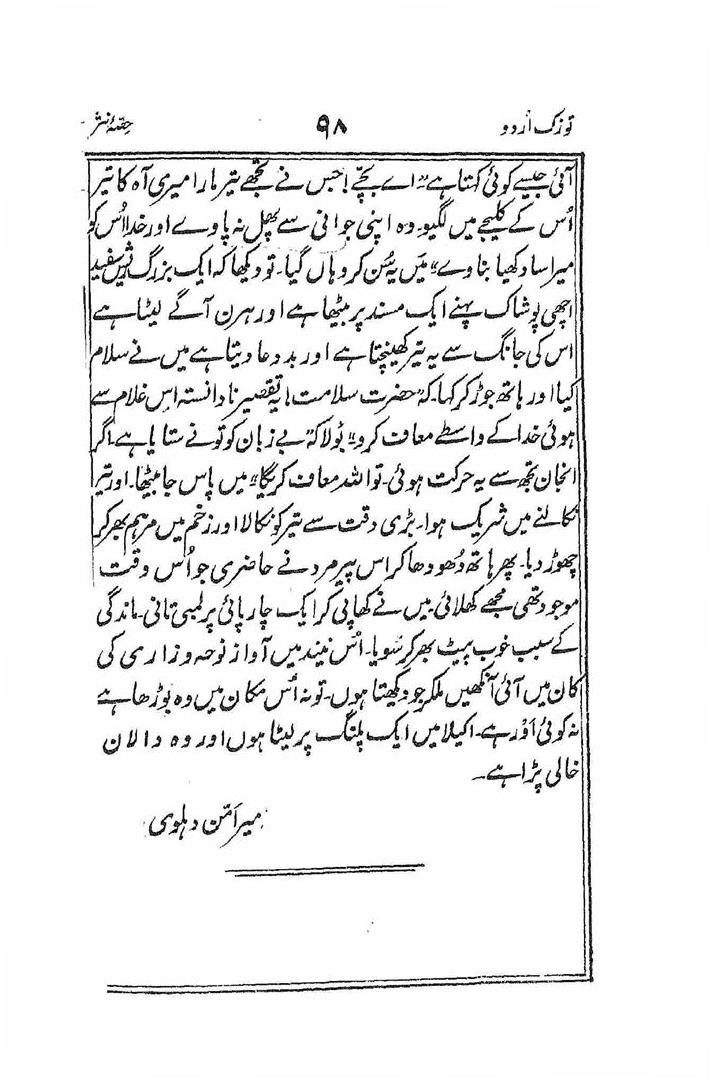 توزک اُردو
۹۸
حصّۂ نثر
آئی جیسے کوئی کہتا ہے "اے بچّے! جس نے تجھے تیر مارا میری آہ کا تیر
اُس کے کلیجے میں لگیو۔ وہ اپنی جوانی سے پھل نہ پاوے اور خدا اُس کو
میرا سا دکھیا بناوے" میں یہ سُن کر وہاں گیا۔ تو دیکھا کہ ایک بزرگ ریش سفید
اچھی پوشاک پہنے ایک مسند پر بیٹھا ہے اور ہرن آگے لیٹا ہے
اس کی جانگ سے یہ تیر کھینچتا ہے اور بد دعا دیتا ہے میں نے سلام
کیا اور ہاتھ جوڑ کر کہا۔ کہ "حضرت سلامت! یہ تقصیر نادانستہ اس غلام سے
ہوئی خدا کے واسطے معاف کرو" بولا کہ "بے زبان کو تو نے ستایا ہے۔ اگر
انجان تجھ سے یہ حرکت ہوئی۔ تو اللہ معاف کریگا" میں پاس جا بیٹھا۔ اور تیر
نکالنے میں شریک ہوا۔ بڑی دقت سے تیر کو نکالا اور زخم میں مرہم بھر کر
چھوڑ دیا۔ پھر ہاتھ دُھو دھا کر اس پیر مرد نے حاضری جو اُس وقت
موجود تھی مجھے کھلائی۔ میں نے کھا پی کر ایک چارپائی پر لمبی تانی۔ ماندگی
کے سبب خوب پیٹ بھر کر سویا۔ اُس نیند میں آواز نوحہ و زاری کی
کان میں آئی آنکھیں ملکر جو دیکھتا ہوں۔ تو نہ اُس مکان میں وہ بوڑھا ہے
نہ کوئی اَوْر ہے۔ اکیلا میں ایک پلنگ پر لیٹا ہوں اور وہ دالان
خالی پڑا ہے۔
میر امّن دہلوی